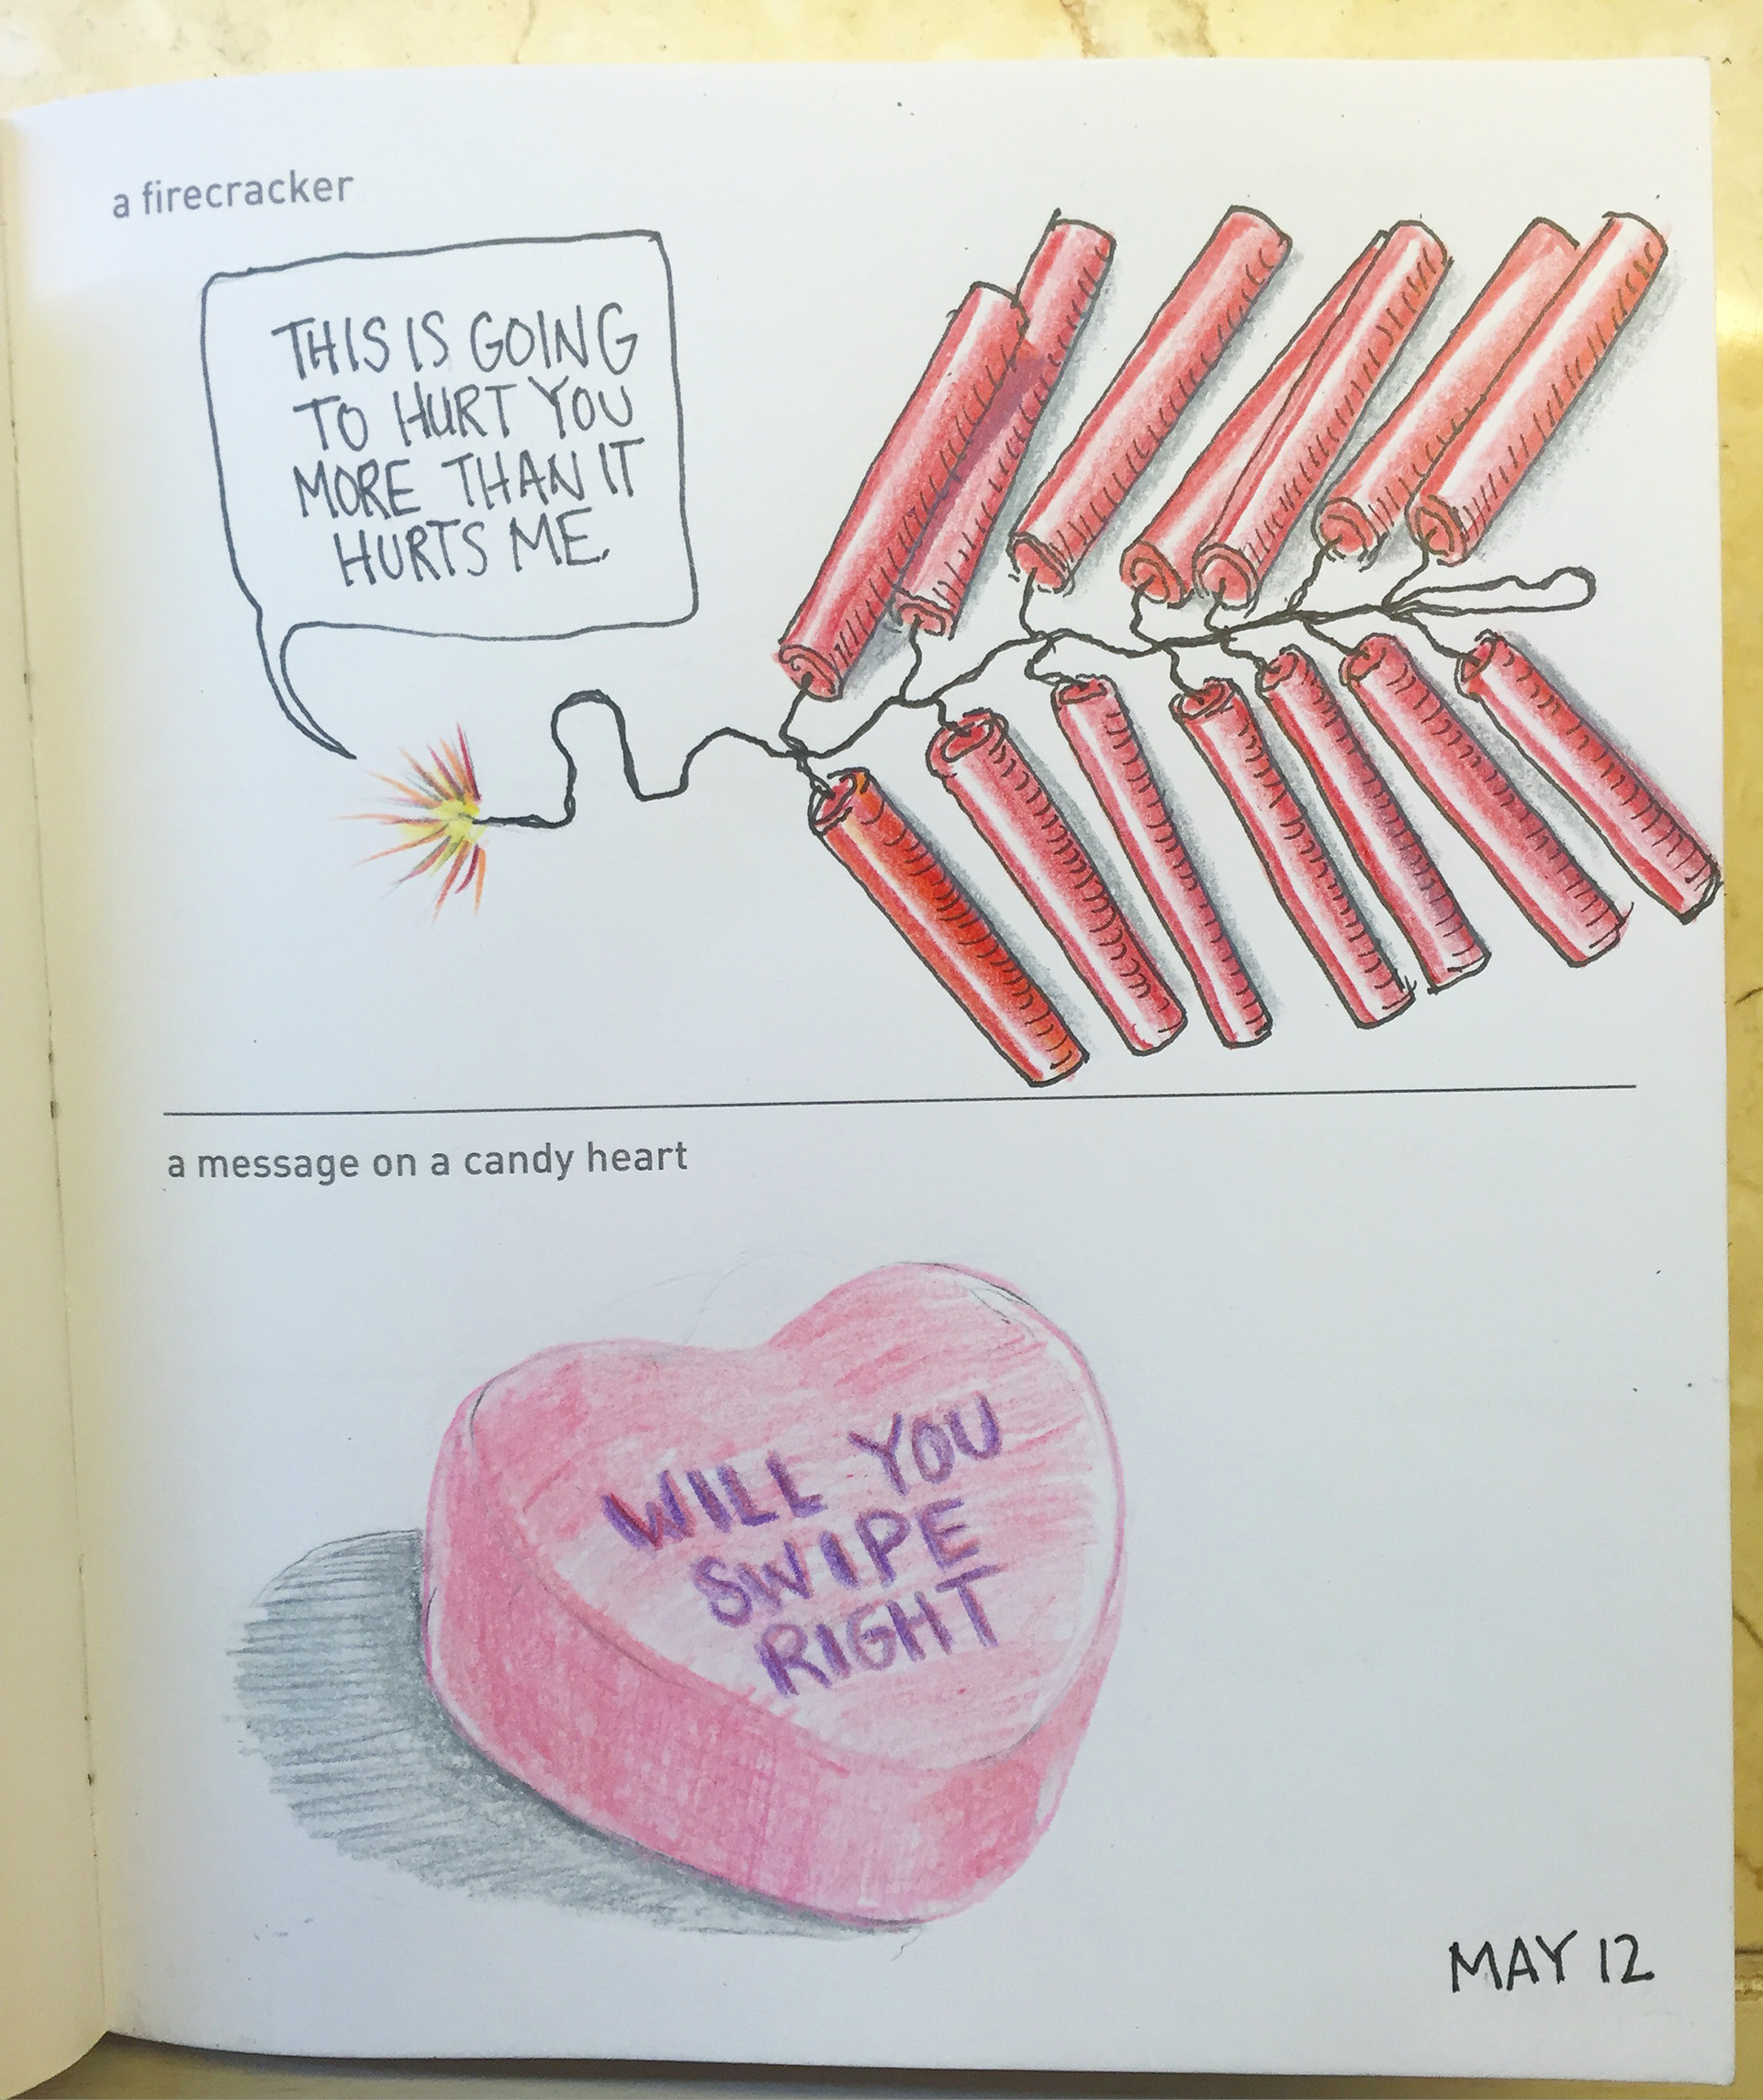 a firecracker
THIS IS GOING
TO HURT YOU
MORE THAN IT
HURTS ME.
a message on a candy heart
WILL YOU
SWIPE
RIGHT
MAY 12